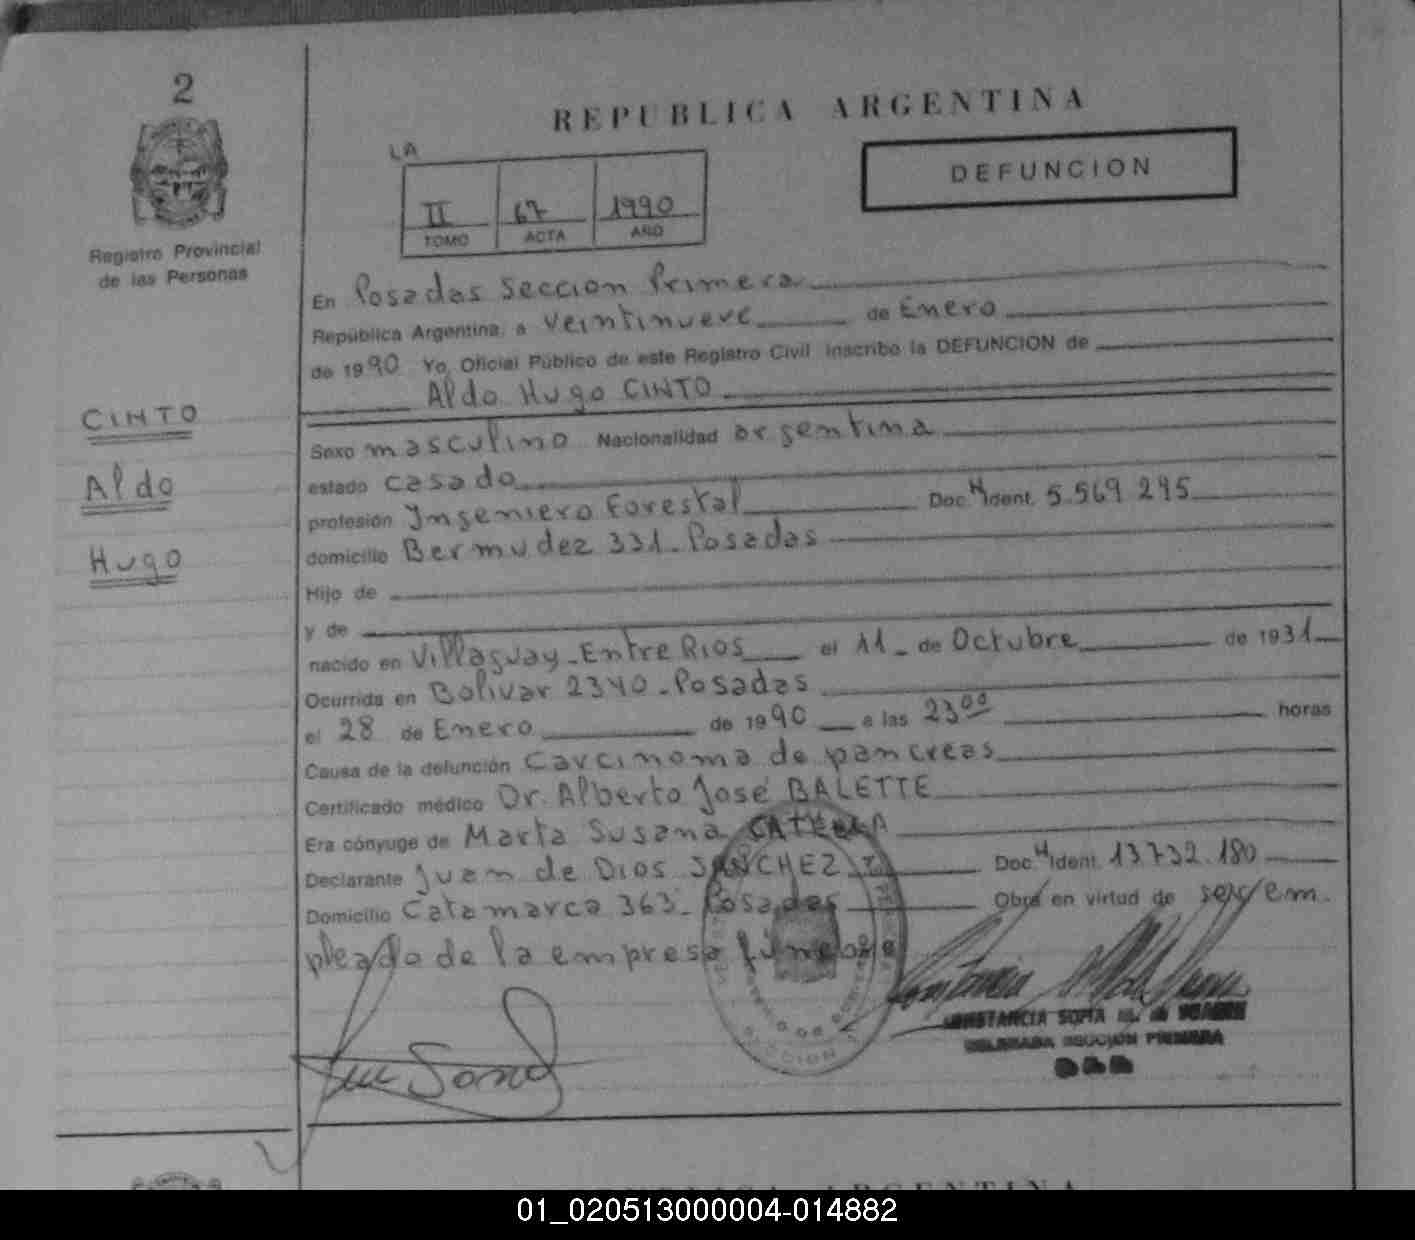 2
REPUBLICA ARGENTINA
LA
DEFUNCION
II 67 1990
TOMO ACTA AÑO
Registro Provincial
de las Personas
En Posadas Seccion Primera
República Argentina, a veintinueve de Enero
de 1990 Yo, Oficial Público de este Registro Civil inscribo la DEFUNCION de
Aldo Hugo CINTO
CINTO
Aldo
Hugo
Sexo masculino Nacionalidad argentina
estado casado
profesión Ingeniero Forestal Doc. Ident. 5.569.295
domicilio Bermudez 331-Posadas
Hijo de
y de
nacido en Villaguay-Entre Rios el 11 de Octubre de 1931
Ocurrida en Bolivar 2340-Posadas
el 28 de Enero de 1990 a las 23 00 horas
Causa de la defunción Carcinoma de pancreas
Certificado médico Dr. Alberto José BALETTE
Era cónyuge de Marta Susana
Declarante Juan de Dios SANCHEZ Doc. Ident. 13.732.180
Domicilio Catamarca 363-Posadas Obra en virtud de ser em-
pleado de la empresa fúnebre
CONSTANCIA SOFIA
DELEGADA SECCION PRIMERA
SECCION
REPUBLICA ARGENTINA
01_020513000004-014882